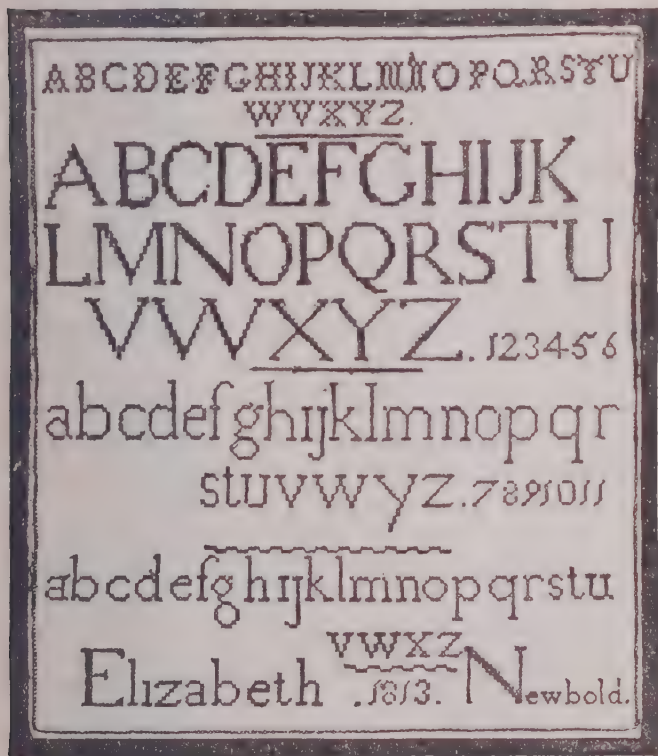 ABCDEFGHIJKLMNOPQRSTU
WVXYZ.
ABCDEFGHIJK
LMNOPQRSTU
VWXYZ. 123456
abcdefghijklmnopqr
stuvwyz. 7891011
abcdefghijklmnopqrstu
VWXZ
Elizabeth .1813. Newbold.